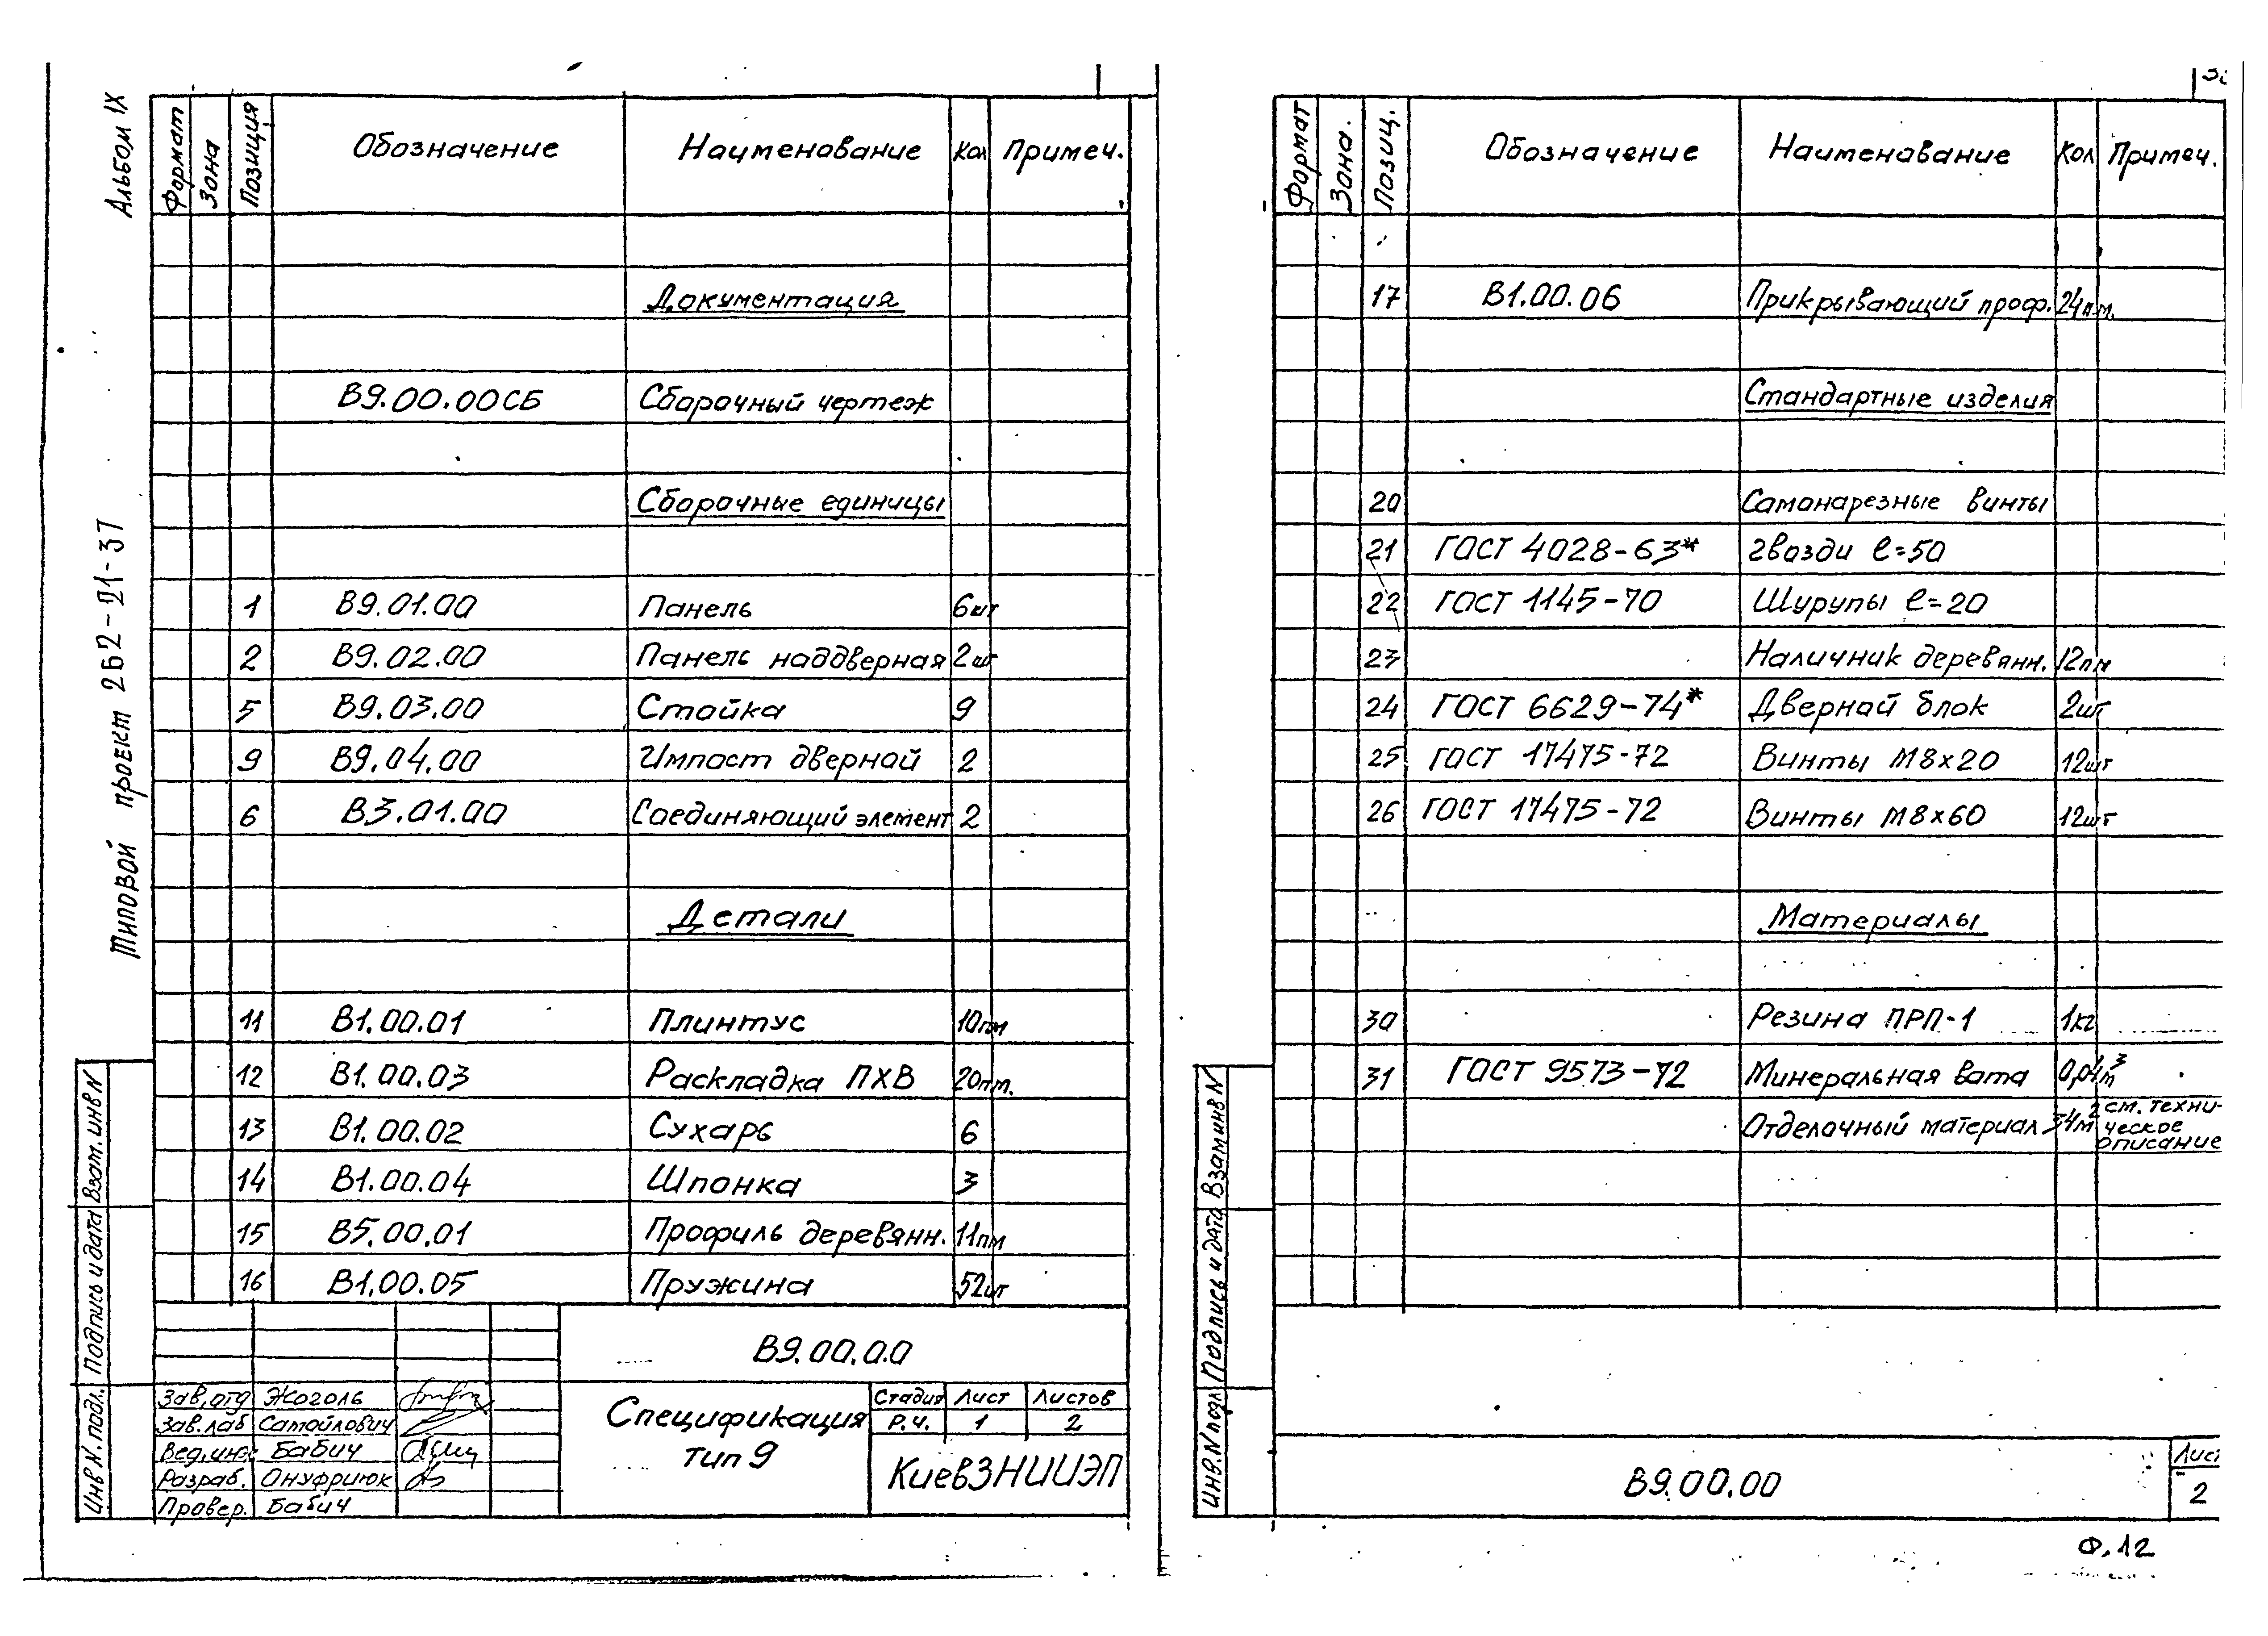 Альбом IX
Типовой проект 262-21-37
Формат Зона Позиция Обозначение Наименование Кол Примеч.
Документация
В9.00.00СБ Сборочный чертеж
Сборочные единицы
1 В9.01.00 Панель 6шт
2 В9.02.00 Панель наддверная 2шт
5 В9.03.00 Стойка 9
9 В9.04.00 Импост дверной 2
6 В3.01.00 Соединяющий элемент 2
Детали
11 В1.00.01 Плинтус 10пм
12 В1.00.03 Раскладка ПХВ 20пм.
13 В1.00.02 Сухарь 6
14 В1.00.04 Шпонка 3
15 В5.00.01 Профиль деревянн. 11пм
16 В1.00.05 Пружина 52шт
В9.00.00
Зав.отд Жоголь
Зав.лаб Самойлович
Вед.инж Бабич
Разраб. Онуфриюк
Провер. Бабич
Спецификация
тип 9
Стадия Лист Листов
Р.Ч. 1 2
КиевЗНИИЭП
Инв N. подл. Подпись и дата Взам. инв N
Формат Зона. Позиц. Обозначение Наименование Кол Примеч.
17 В1.00.06 Прикрывающий проф. 24п.м.
Стандартные изделия
20 Самонарезные винты
21 ГОСТ 4028-63* Гвозди ℓ=50
22 ГОСТ 1145-70 Шурупы ℓ=20
23 Наличник деревянн. 12пм
24 ГОСТ 6629-74* Дверной блок 2шт
25 ГОСТ 17475-72 Винты М8х20 12шт
26 ГОСТ 17475-72 Винты М8х60 12шт
Материалы
30 Резина ПРП-1 1кг
31 ГОСТ 9573-72 Минеральная вата 0,04м³
Отделочный материал 34м² см. техни-
ческое
описание
В9.00.00
Лист
2
Инв. N подл Подпись и дата Взам инв N
Ф.12